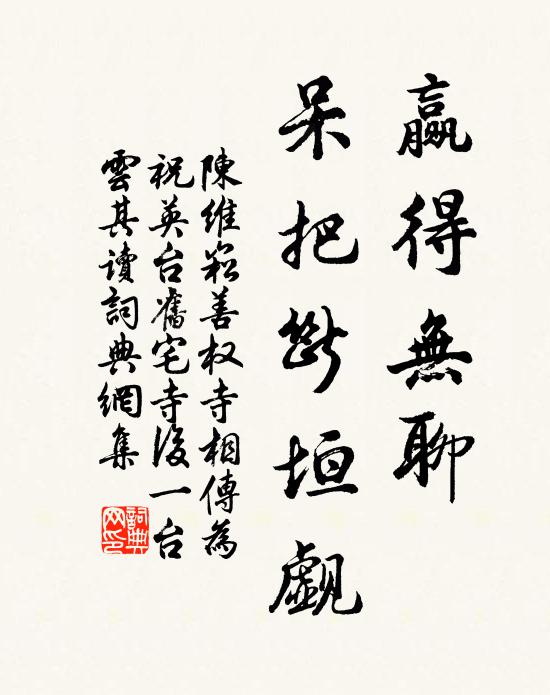 贏得無聊
呆把斷垣覷
陳維崧善权寺相傳為
祝英台舊宅寺後一台
雲其讀詞典網集
詞典网印